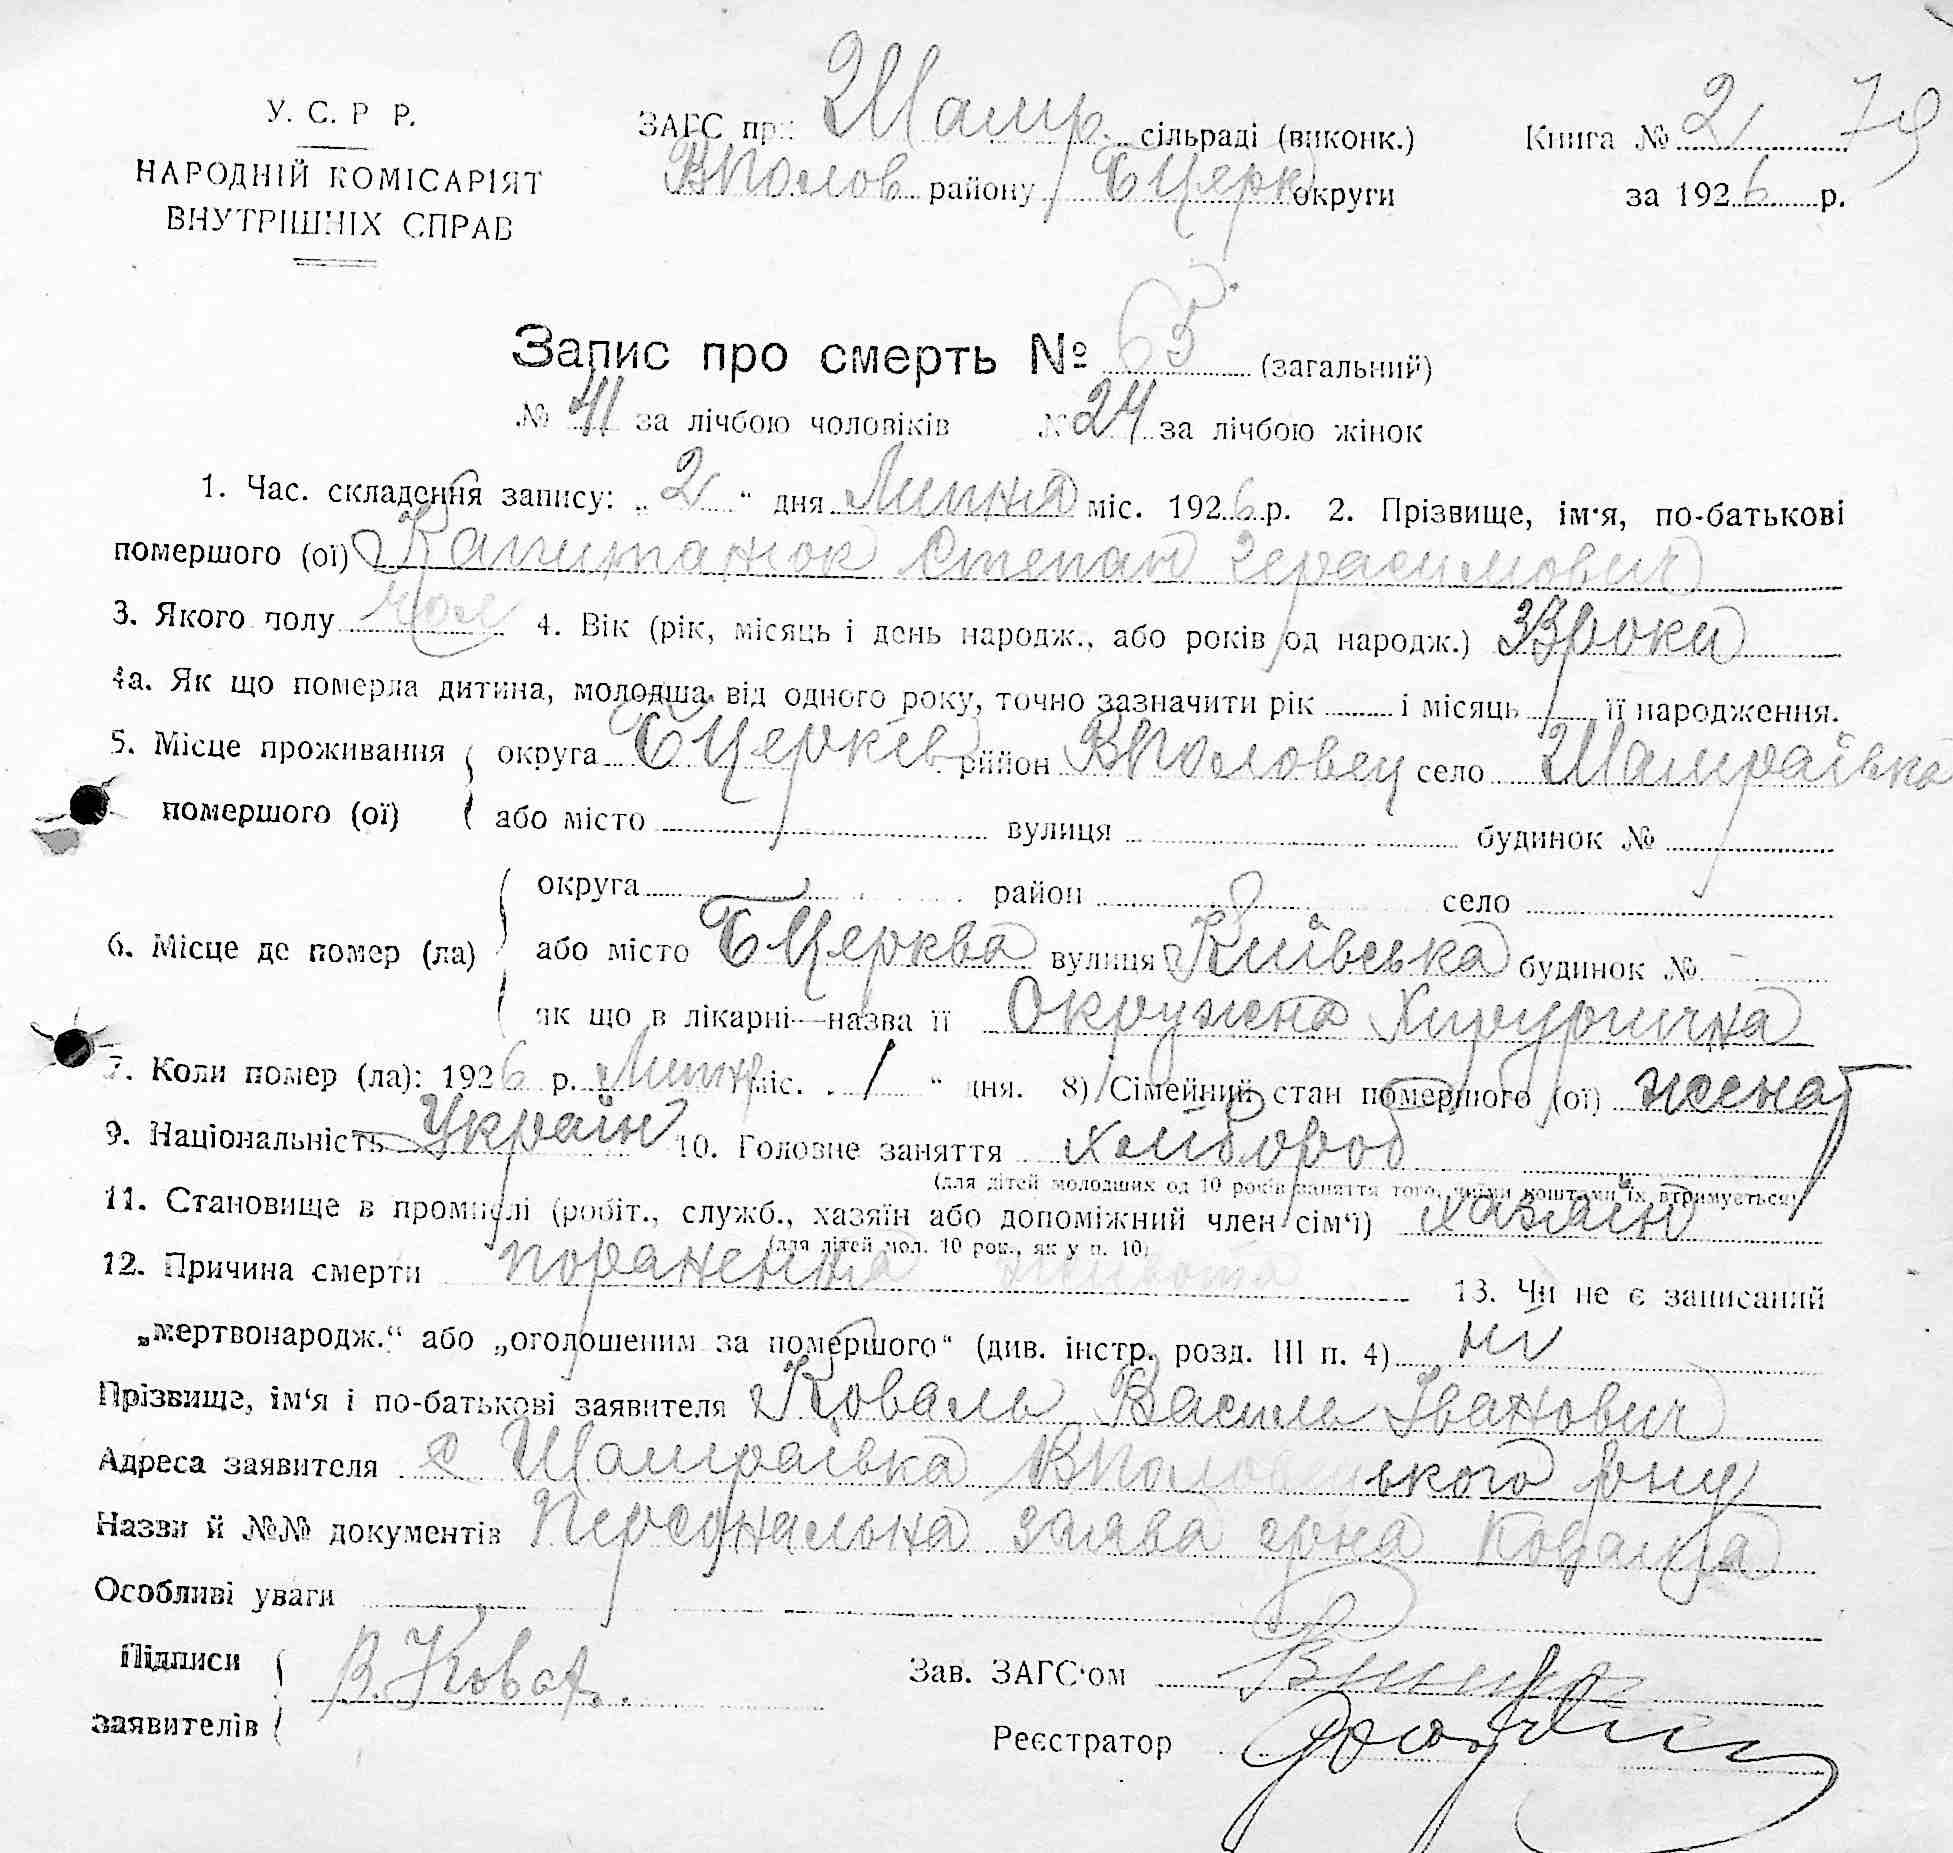 У. С. Р Р.
НАРОДНІЙ КОМІСАРІЯТ
ВНУТРІШНІХ СПРАВ
ЗАГС при Шамр. сільраді (виконк.)
ВПолов району БЦерк округи
Книга № 2 79
за 1926 р.
Запис про смерть № 65 (загальний)
№ 41 за лічбою чоловіків № 24 за лічбою жінок
1. Час. складення запису: „2“ дня Липня міс. 1926 р. 2. Прізвище, ім‘я, по-батькові
помершого (ої) Капитанюк Степан Герасимович
3. Якого полу чол 4. Вік (рік, місяць і день народж., або років од народж.) 33 роки
4а. Як що померла дитина, молодша від одного року, точно зазначити рік і місяць її народження.
5. Місце проживання округа БЦерків район ВПоловец село Шамраївка
помершого (ої) або місто вулиця будинок №
округа район село
6. Місце де помер (ла) або місто БЦерква вулиця Київська будинок № -
як що в лікарні—назва її Окружна Хирургична
7. Коли помер (ла): 1926 р. Липня міс. 1 “ дня. 8) Сімейний стан помершого (ої) женат
9. Національність Україн 10. Головне заняття хлібороб
(для дітей молодших од 10 років заняття того, чиїми коштами їх втримується)
11. Становище в промислі (робіт., служб., хазяїн або допоміжний член сім‘ї) хазяїн
(для дітей мол. 10 рок., як у п. 10)
12. Причина смерти пораненна живота 13. Чи не є записаний
„мертвонародж.“ або „оголошеним за помершого“ (див. інстр. розд. III п. 4) ні
Прізвище, ім‘я і по-батькові заявителя Коваль Василь Іванович
Адреса заявителя с Шамраївка ВПоловецького рну
Назви й №№ документів Персональна заява грна Коваля
Особливі уваги
Підписи В. Ковал.
заявителів
Зав. ЗАГС‘ом
Реєстратор